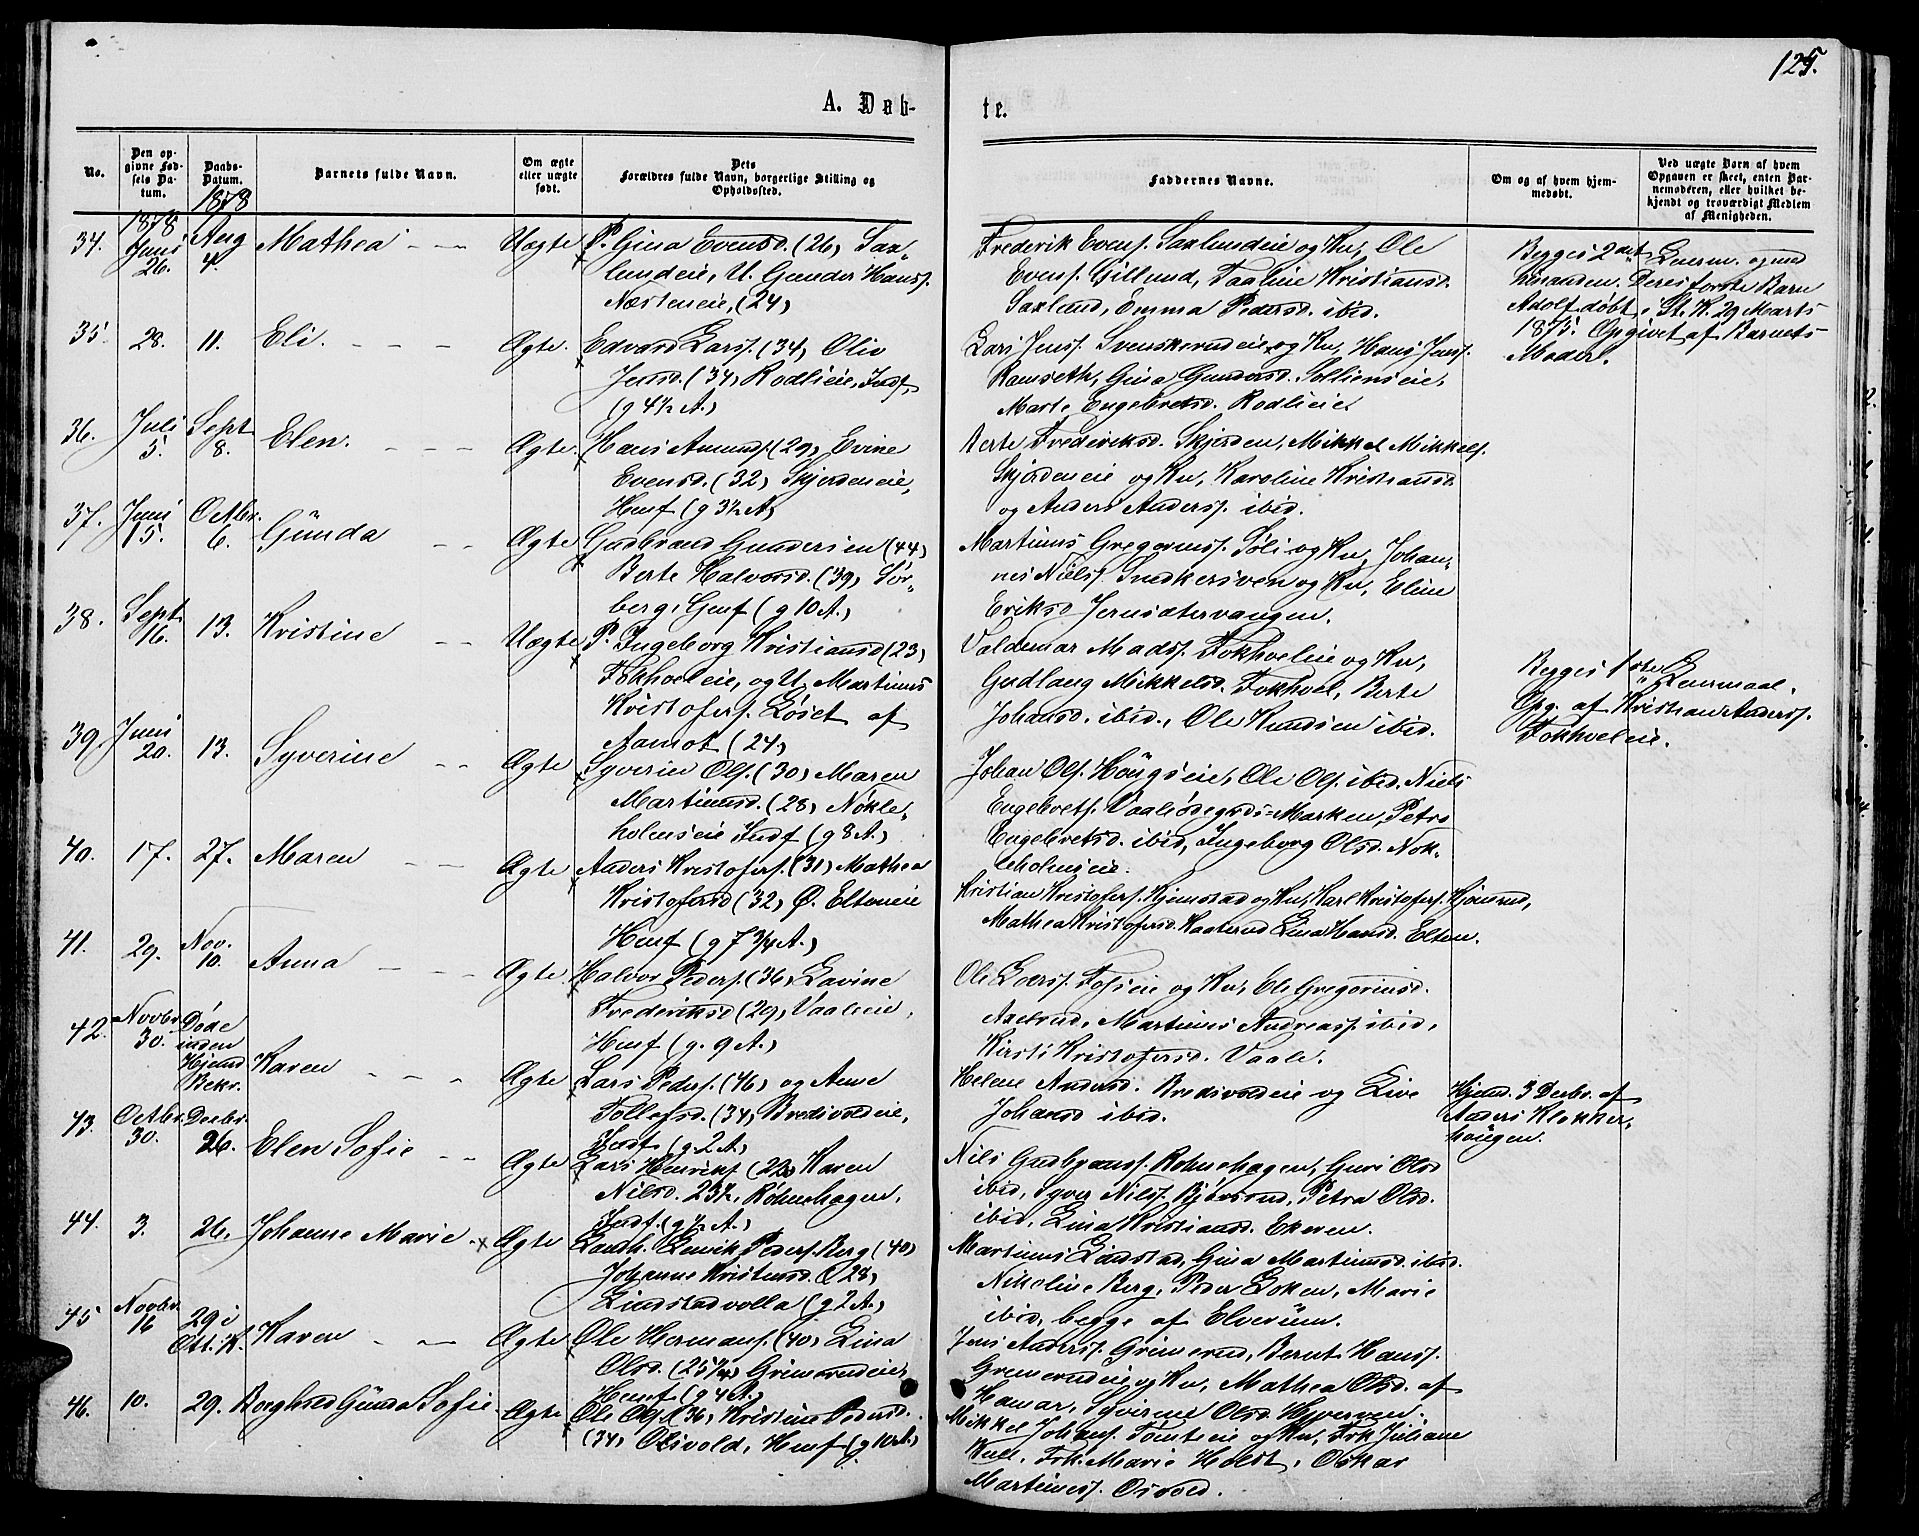 125.
A. Døb-
te.
No.
Den op-
givne Fød-
sels Da-
tum.
Daabs-
Datum.
Barnets fulde Navn.
Om ægte
eller uægte
født.
Dets
Forældres fulde Navn, borgerlige Stilling og
Opholdssted.
Faddernes Navne.
Om og af hvem hjem-
medøbt.
Ved uægte Barn af hvem
Opgaven er skeet, enten Bar-
nemoderen, eller hvilket be-
kjendt og troværdigt Medlem
af Menigheden.
1878
1878
34. Juni 26. Aug 4. Mathea Uægte P. Gina Evensd. (26) Sax-
lundeie, U. Gunder Hanss.
Næsteneie, (24)
Frederik Evens. Saxlundeie og Kn, Ole
Evens. Gillund, Taaline Kristiansd.
Saxlund, Emma Pedersd. ibid.
Begges 2det Leierm. og med
hinanden. Deres første Barn
Adolf døbt i St. K. 29 Marts
1875. Opgivet af Barnets
Moder.
35. 28. 11. Eli. Ægte. Edvard Larss. (34) Oliv
Jensd. (34) Rodlieie, Indf,
(g 4½ A.)
Lars Jenss. Svenskerudeie og Kn, Hans Jenss.
Ramseth, Gina Gundersd. Sollienseie,
Marte Engebretsd. Rodlieie.
36. Juli 5. Sept 8. Elen. Ægte. Hans Amunds. (29) Evine
Evensd. (32) Skjerdeneie,
Huusf (g 3½ A)
Berte Frederiksd. Skjerden, Mikkel Mikkels.
Skjerdeneie og Kn, Karoline Kristiansd
og Anders Anderss. ibid.
37. Juni 15. Octbr. 6. Günda Ægte Gudbrand Gundersen (44)
Berte Halvorsd. (39) Sør-
berg, Huusf (g 10 A.)
Martinus Gregoriuss. Søli og Kn, Johan-
nes Niels. Snekkersveen og Kn, Eline
Eriksd Jernsætervangen.
38. Sept 16. 13. Kristine Uægte P. Ingeborg Kristiansd (23)
Fokhoeleie, og U. Martinus
Kristofers. Løset af
Aamot (24)
Valdemar Madss. Fokhoeleie og Kn,
Gudlaug Mikkelsd. Fokhoel, Berte
Johansd. ibid., Ole Knudsen ibid.
Begges 1ste Leiermaal.
Opg. af Kristian Anderss.
Fokhoeleie.
39. Juni 20. 13. Syverine Ægte Syverin Ols. (30) Maren
Martinusd. (28) Nøkle-
holmseie Indf (g 8 A.)
Johan Ols. Høugseie, Ole Ols. ibid. Niels
Engebrets. Vaaløsegrds-Marken, Petra
Engebretsd. ibid, Ingeborg Olsd. Nøk-
leholmseie.
40. 17. 27. Maren Ægte Anders Kristofers. (31) Mathea
Kristofersd (32) Ø. Eltoneie
Huusf (g 7 3/4 A.)
Kristian Kristofers. Kjernstad og Kn, Karl Kristofers. Kjønrud,
Mathea Kristofersd. Kaaterud Lina Hansd. Elton.
41. 29. Nov. 10. Anna Ægte Halvor Peders. (36) Lavine
Frederiksd (29) Vaaleeie,
Huusf (g. 9 A.)
Ole Larss. Fosseie og Kn, Ele Gregoriusd.
Axelrud, Martinus Andreass. ibid,
Kirsti Kristofersd. Vaale.
42. Novbr 30. Døde
inden
Hjemd
Bekr. Karen Ægte Lars Peders. (46) og Anne
Tollefsd. (34) Bredvoldeie,
Indf (g. 2 A.)
Helene Andersd. Bredsvoldeie og Live
Johansd ibid.
Hjemd. 3 Decbr. af
Anders Klokker-
høugen.
43. Octbr. 30. Decbr. 26. Elen Sofie Ægte Lars Henriks (22) Karen
Nilsd. 23½, Rohnehagen,
Indf. (g ½ A.)
Nils Gudbrans. Rohnehagen, Guri Olsd
ibid, Syver Nilss. Bjørsrud, Petra Olsd.
ibid, Lina Kristiansd. Ekeren.
44. 3. 26. Johanne Marie Ægte Landh. Lenrik Peders. Berg (40)
Johanne Kristensd. (28)
Lindstadvolla (g 2 A.)
Martinus Lindstad, Gina Martinusd. ibid.
Nikoline Berg, Peder Løken, Marie
ibid, begge af Elverüm.
45 Novbr. 16 29 i
Ott. K. Karen Ægte Ole Hermans. (40) Lina
Olsd. (25¼) Grimerudeie,
Huusf (g 4 A.)
Jens Anderss. Grimerud, Bernt Hanss.
Grimerudeie og Kn, Mathea Olsd. af
Hamar, Syverine Olsd. Hverven.
46. 10. 29. Borghild Günda Sofie Ægte Ole Ols. (36) Kristine Pedersd.
(34) Osvold, Huusf (g 10 A.)
Mikkel Johans. Tømteie og Kn, Frk Juliane
Kull, Frk. Marie Holst, Oskar
Martinuss. Osvold.